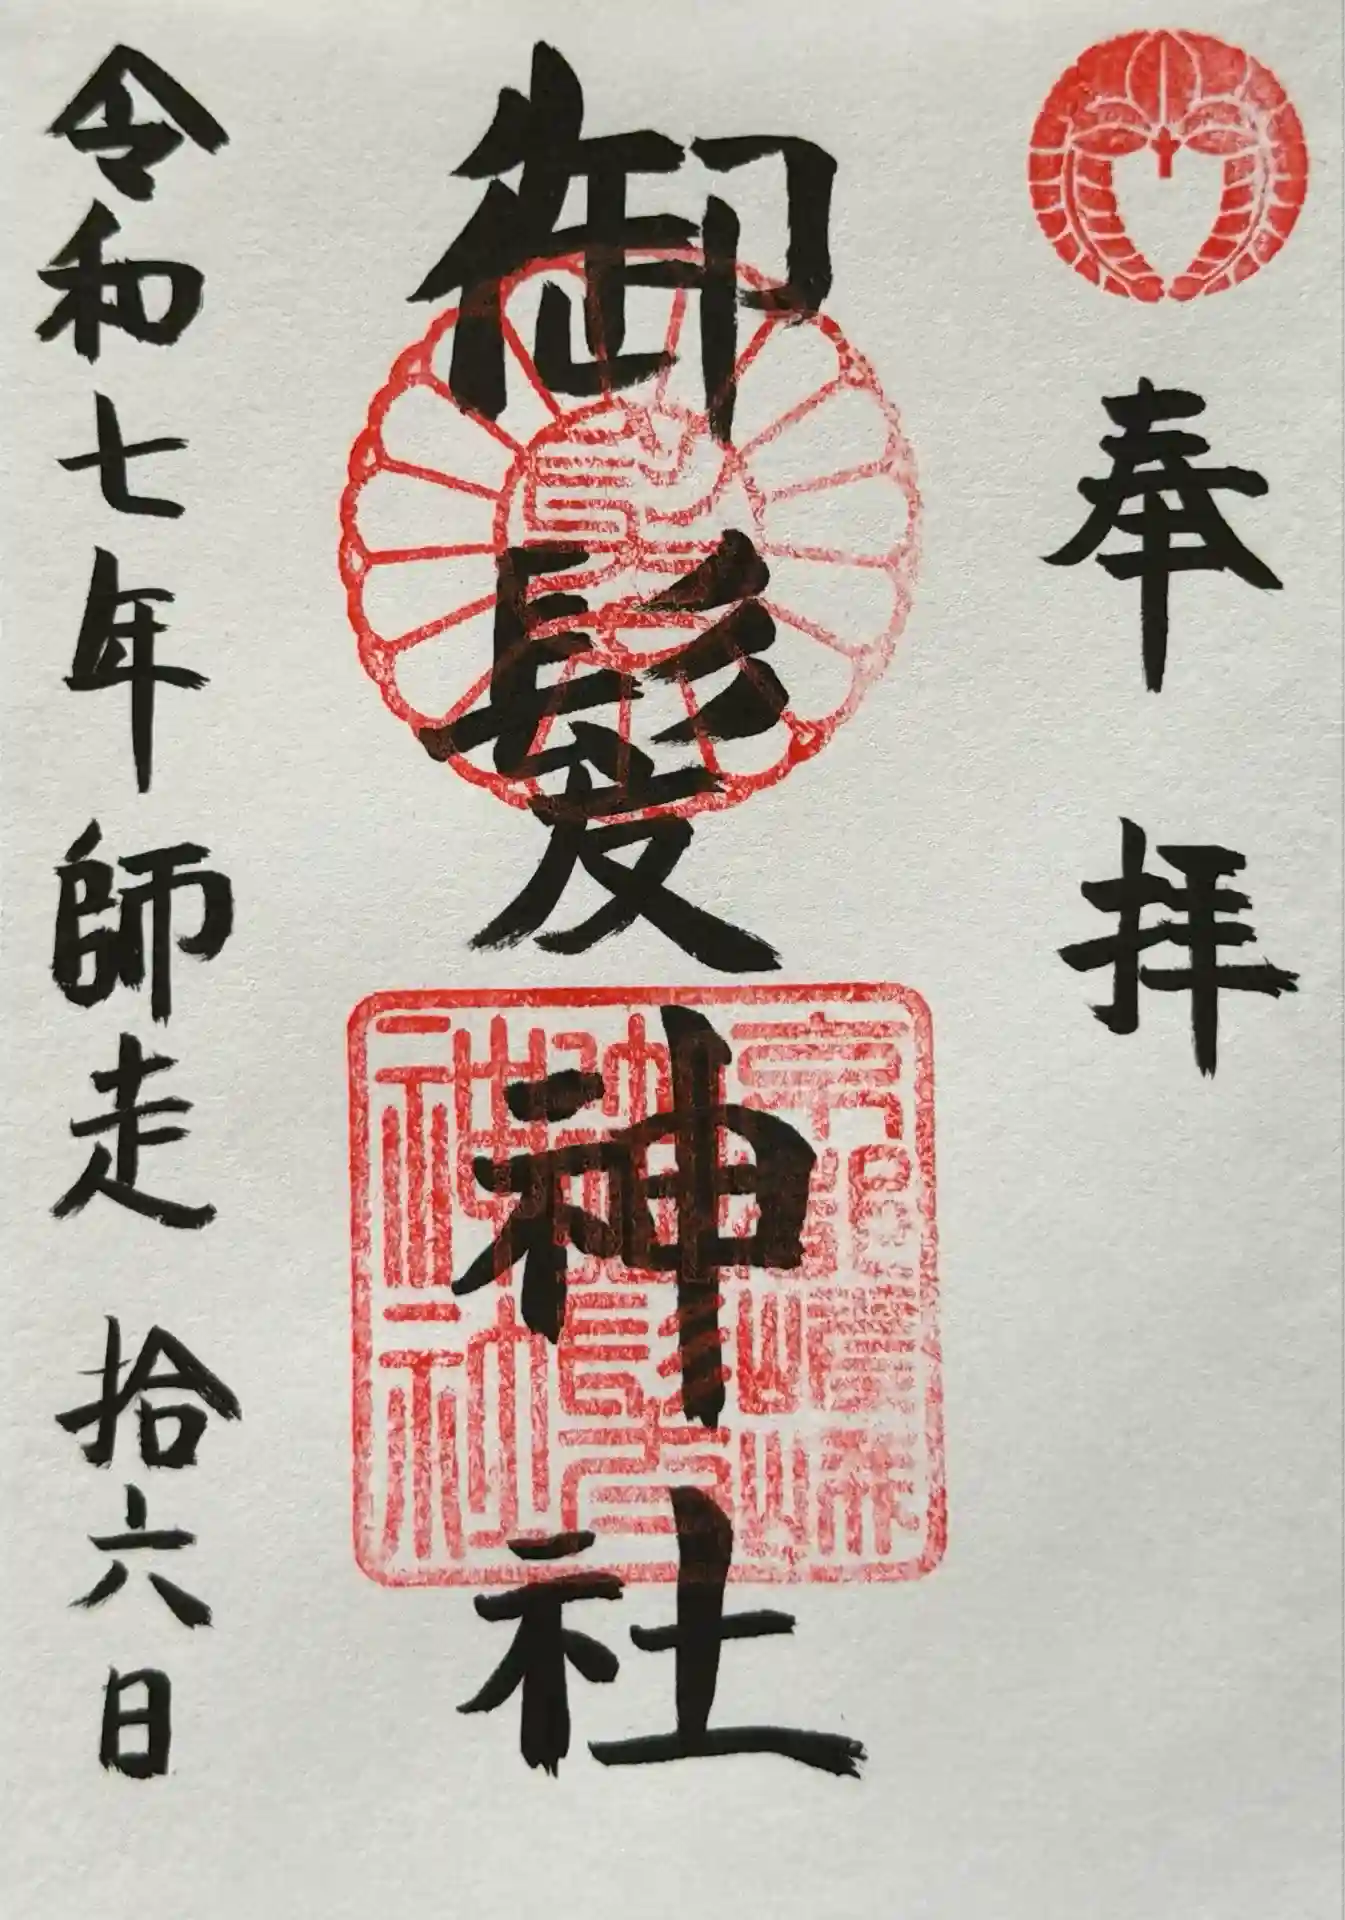 奉拝
御髪神社
令和七年師走拾六日
京都嵯峨
御髪
神社